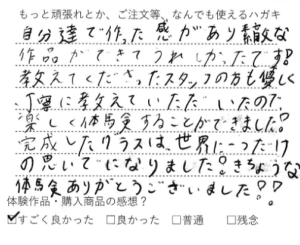 もっと頑張れとか、ご注文等、なんでも使えるハガキ
自分達で作った感があり素敵な
作品ができてうれしかったです!
教えてくださったスタッフの方も優しく
丁寧に教えていただいたので
楽しく体馬食することができました!
完成したグラスは、世界に一つだけ
の思いでになりました!きちょうな
体馬食ありがとうございました!!
体験作品・購入商品の感想?
☑すごく良かった □良かった □普通 □残念